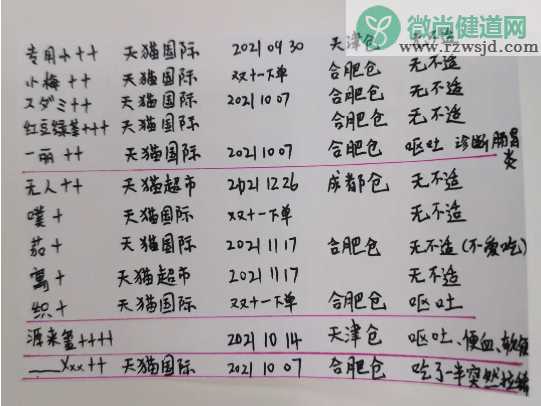 微尚健道网
www.rzwsjd.com
专用水++ 天猫国际 2021 09 30 天津仓 无不适
小梅++ 天猫国际 双十一下单 合肥仓 无不适
スダミ++ 天猫国际 2021 10 07 合肥仓 无不适
红豆绿茎+++ 天猫国际 合肥仓 无不适
一丽++ 天猫国际 2021 10 07 合肥仓 呕吐 诊断肠胃炎
无人++ 天猫超市 2021 12 26 成都仓 无不适
噗+ 天猫国际 双十一下单 无不适
茄+ 天猫国际 2021 11 17 合肥仓 无不适(不爱吃)
天猫超市 2021 11 17 无不适
织+ 天猫国际 双十一下单 合肥仓 呕吐
源来玺++++ 2021 10 14 天津仓 呕吐、便血、软便
Yxxx++ 天猫国际 2021 10 07 合肥仓 吃了一半突然拒